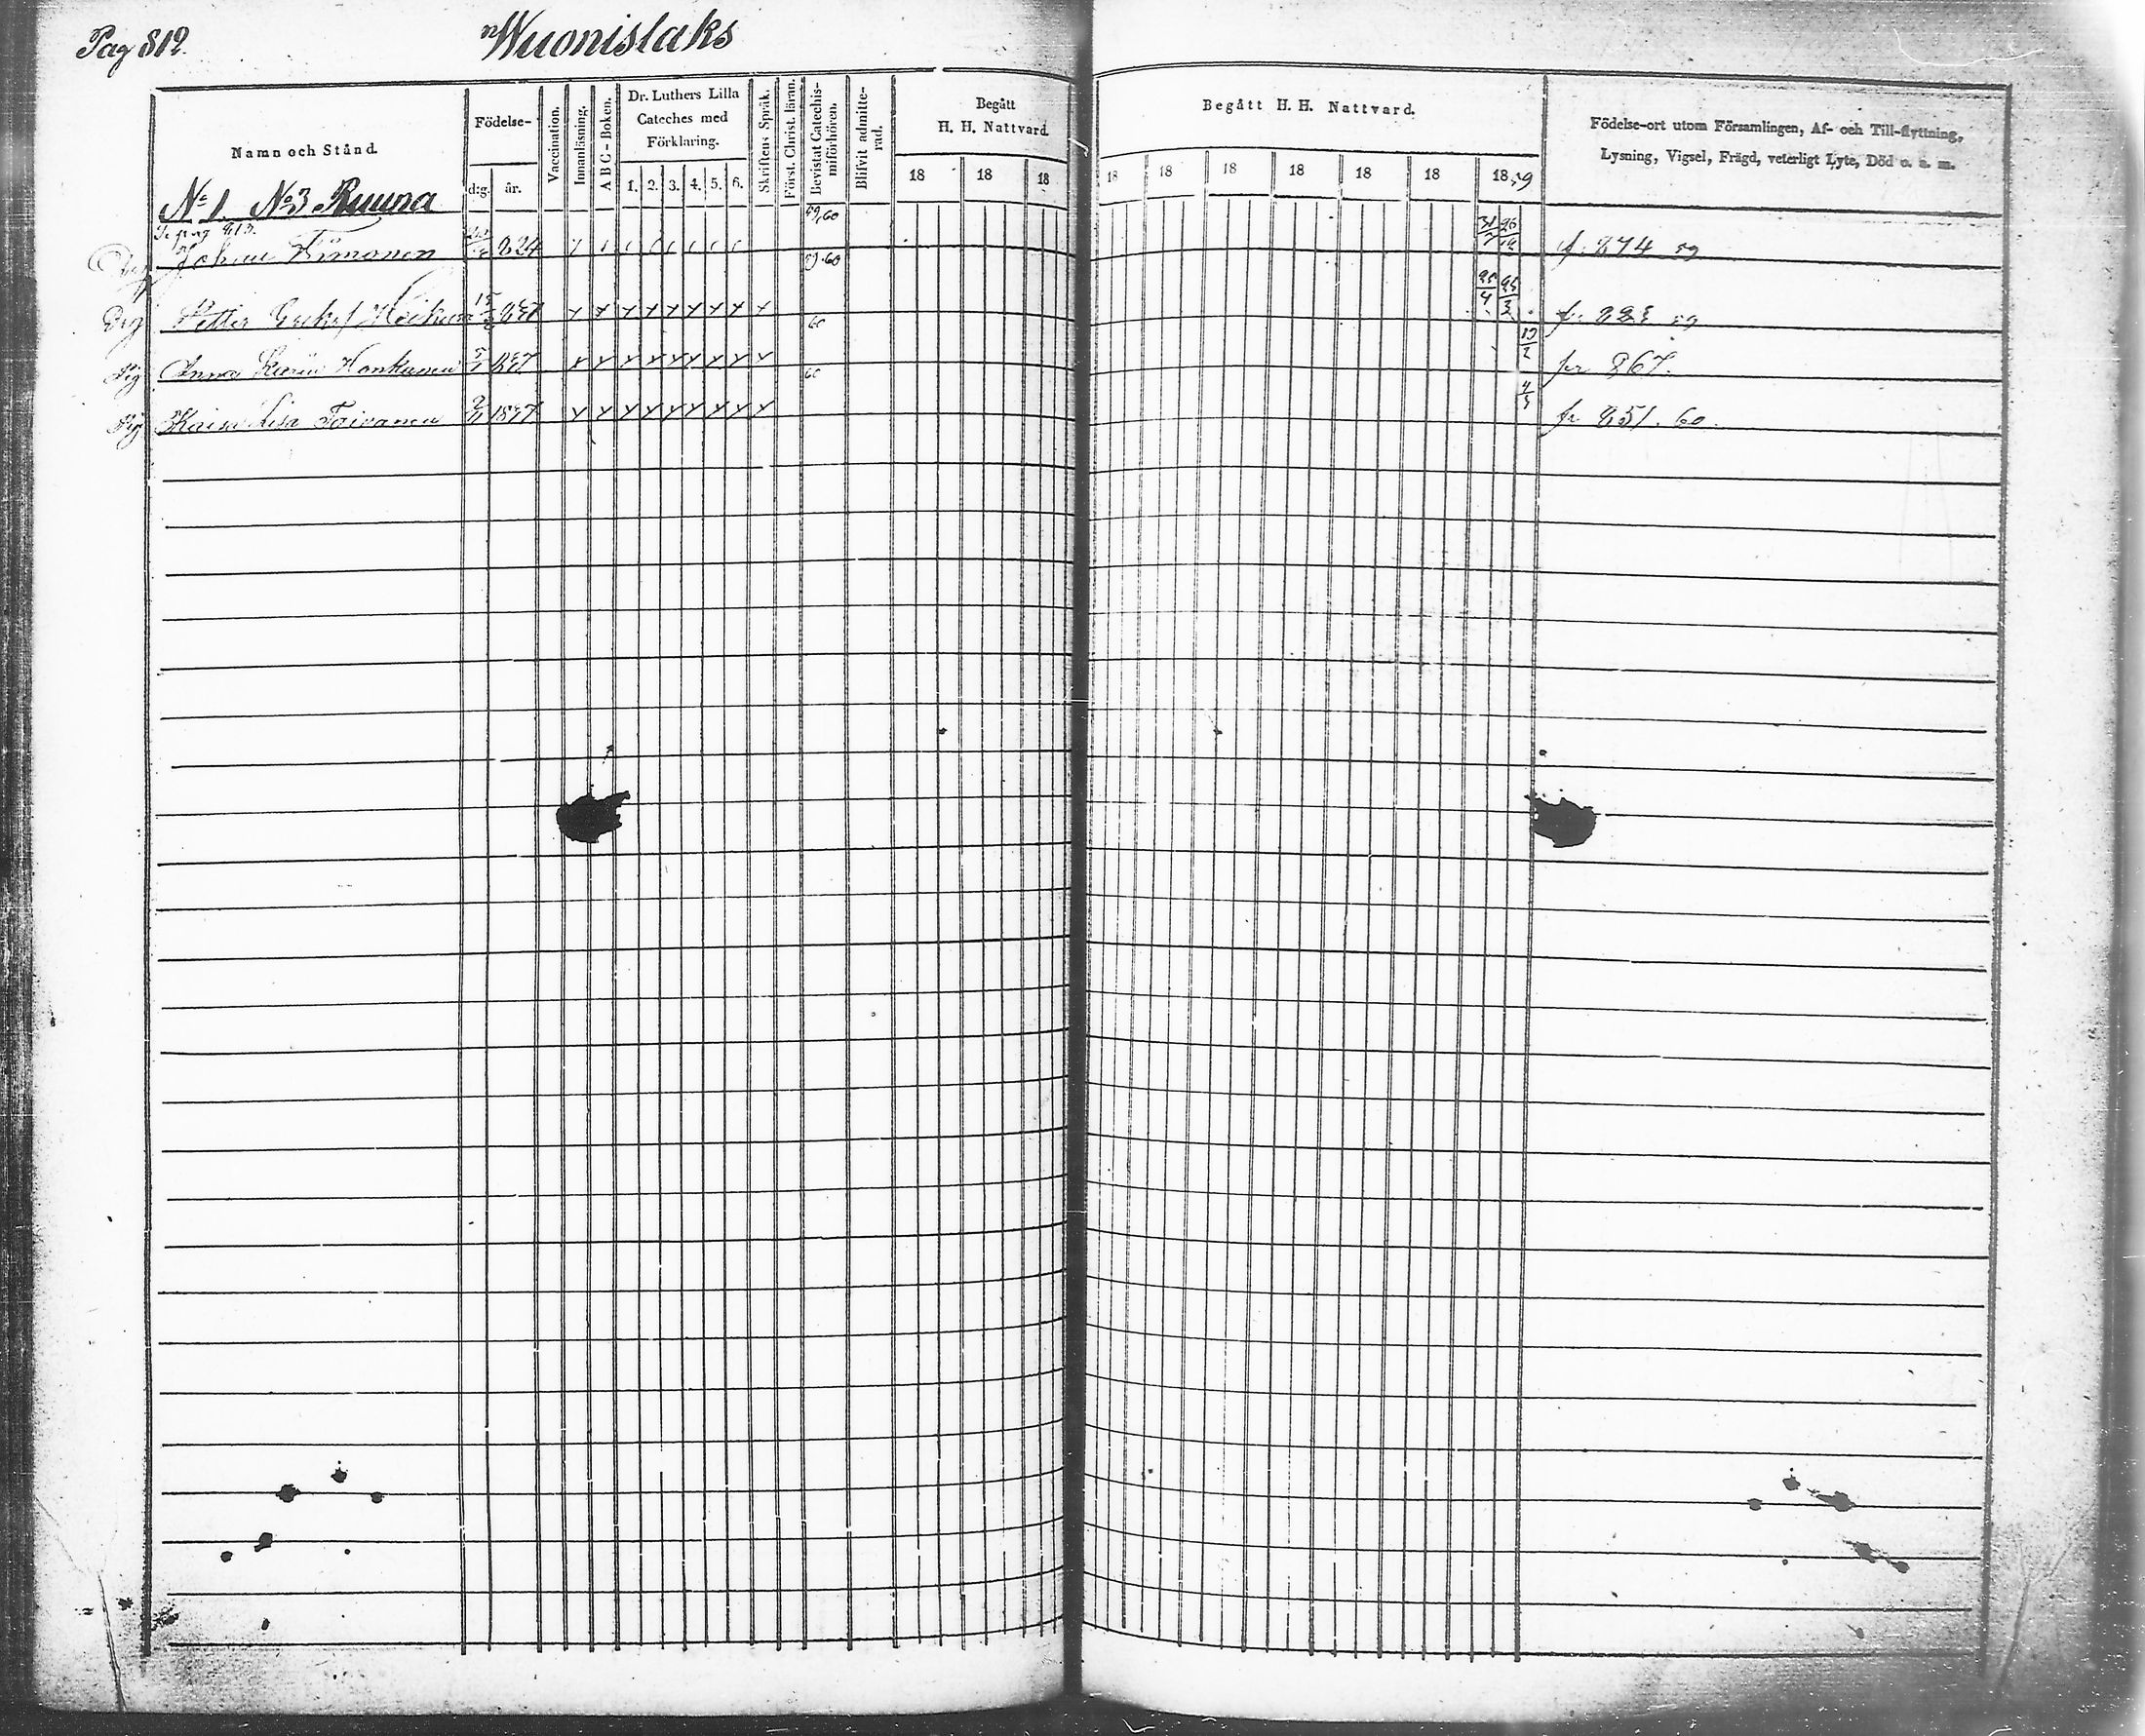 Pag 812.
Wuonislaks
Namn och Stånd.
Födelse-
d:g.
år.
Vaccination.
Innanläsning.
A B C - Boken.
Dr. Luthers Lilla
Cateches med
Förklaring.
1. 2. 3. 4. 5. 6.
Skriftens Språk.
Först. Christ. läran.
Bevistat Catechis-
miförhören.
Blifvit admitte-
rad.
Begått
H. H. Nattvard.
18 18 18
Begått H. H. Nattvard.
18 18 18 18 18 18 1859
Födelse-ort utom Församlingen, Af- och Till-flyttning,
Lysning, Vigsel, Frägd, veterligt Lyte, Död o. s. m.
No 1. No 3 Ruuna
Se pag 813.
Johan 824 59,60 31/7 f. 874 59
Drg Petter 59.60 f. 59
Pig Anna Karin Honkanen 60 13/2 fr 867.
Pig Kaisa Lisa Taivanen 1837 60 4/3 fr 851. 60